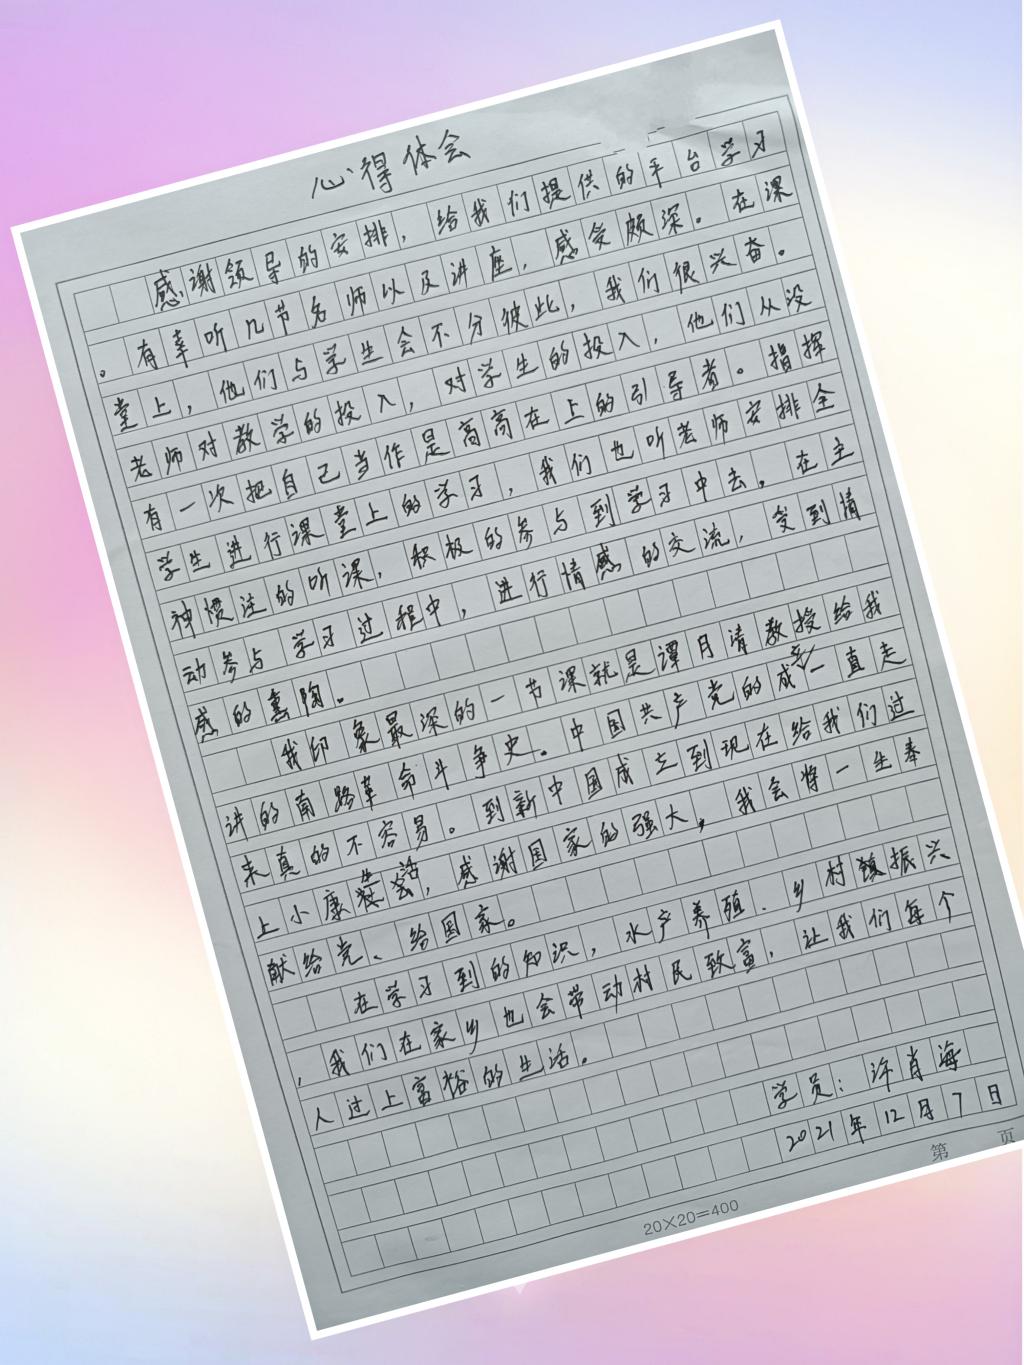 心得体会
感谢领导的安排，给我们提供的平台学习
。有幸听几节名师以及讲座，感受颇深。在课
堂上，他们与学生会不分彼此，我们很兴奋。
老师对教学的投入，对学生的投入，他们从没
有一次把自己当作是高高在上的引导者。指挥
学生进行课堂上的学习，我们也听老师安排全
神惯注的听课，积极的参与到学习中去。在主
动参与学习过程中，进行情感的交流，受到情
感的熏陶。
我印象最深的一节课就是谭月清教授给我
讲的南路革命斗争史。中国共产党的成立一直走
来真的不容易。到新中国成立到现在给我们过
上小康生活，感谢国家的强大，我会将一生奉
献给党、给国家。
在学习到的知识，水产养殖、乡村镇振兴
，我们在家乡也会带动村民致富，让我们每个
人过上富裕的生活。
学员：许肖海
2021年12月7日
第 页
20×20=400